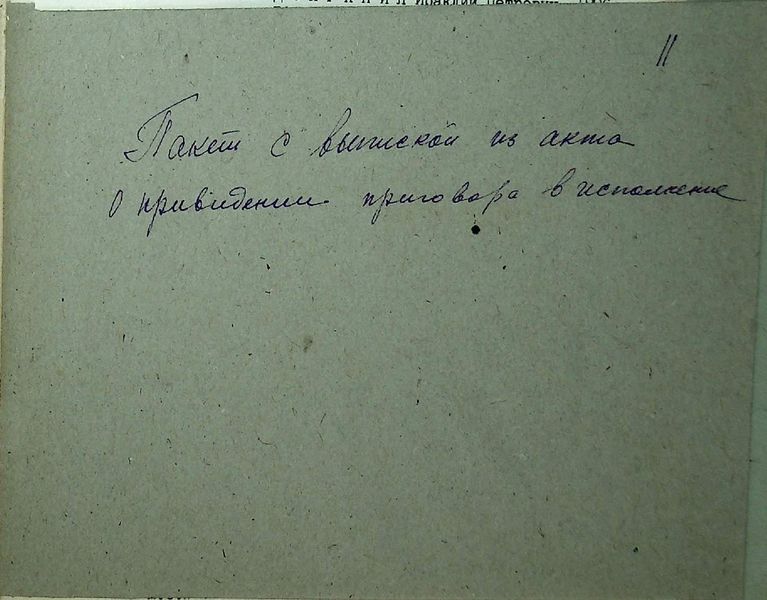 Ираклий Петрович
11
Пакет с выпиской из акта
о привидении приговора в исполнение